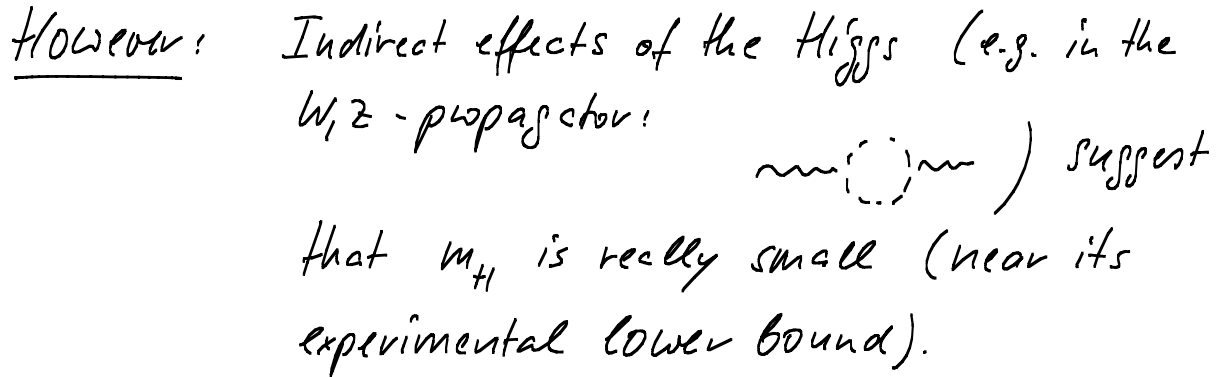 However: Indirect effects of the Higgs (e.g. in the
W, Z - propagator:
) suggest
that m_H is really small (near its
experimental lower bound).